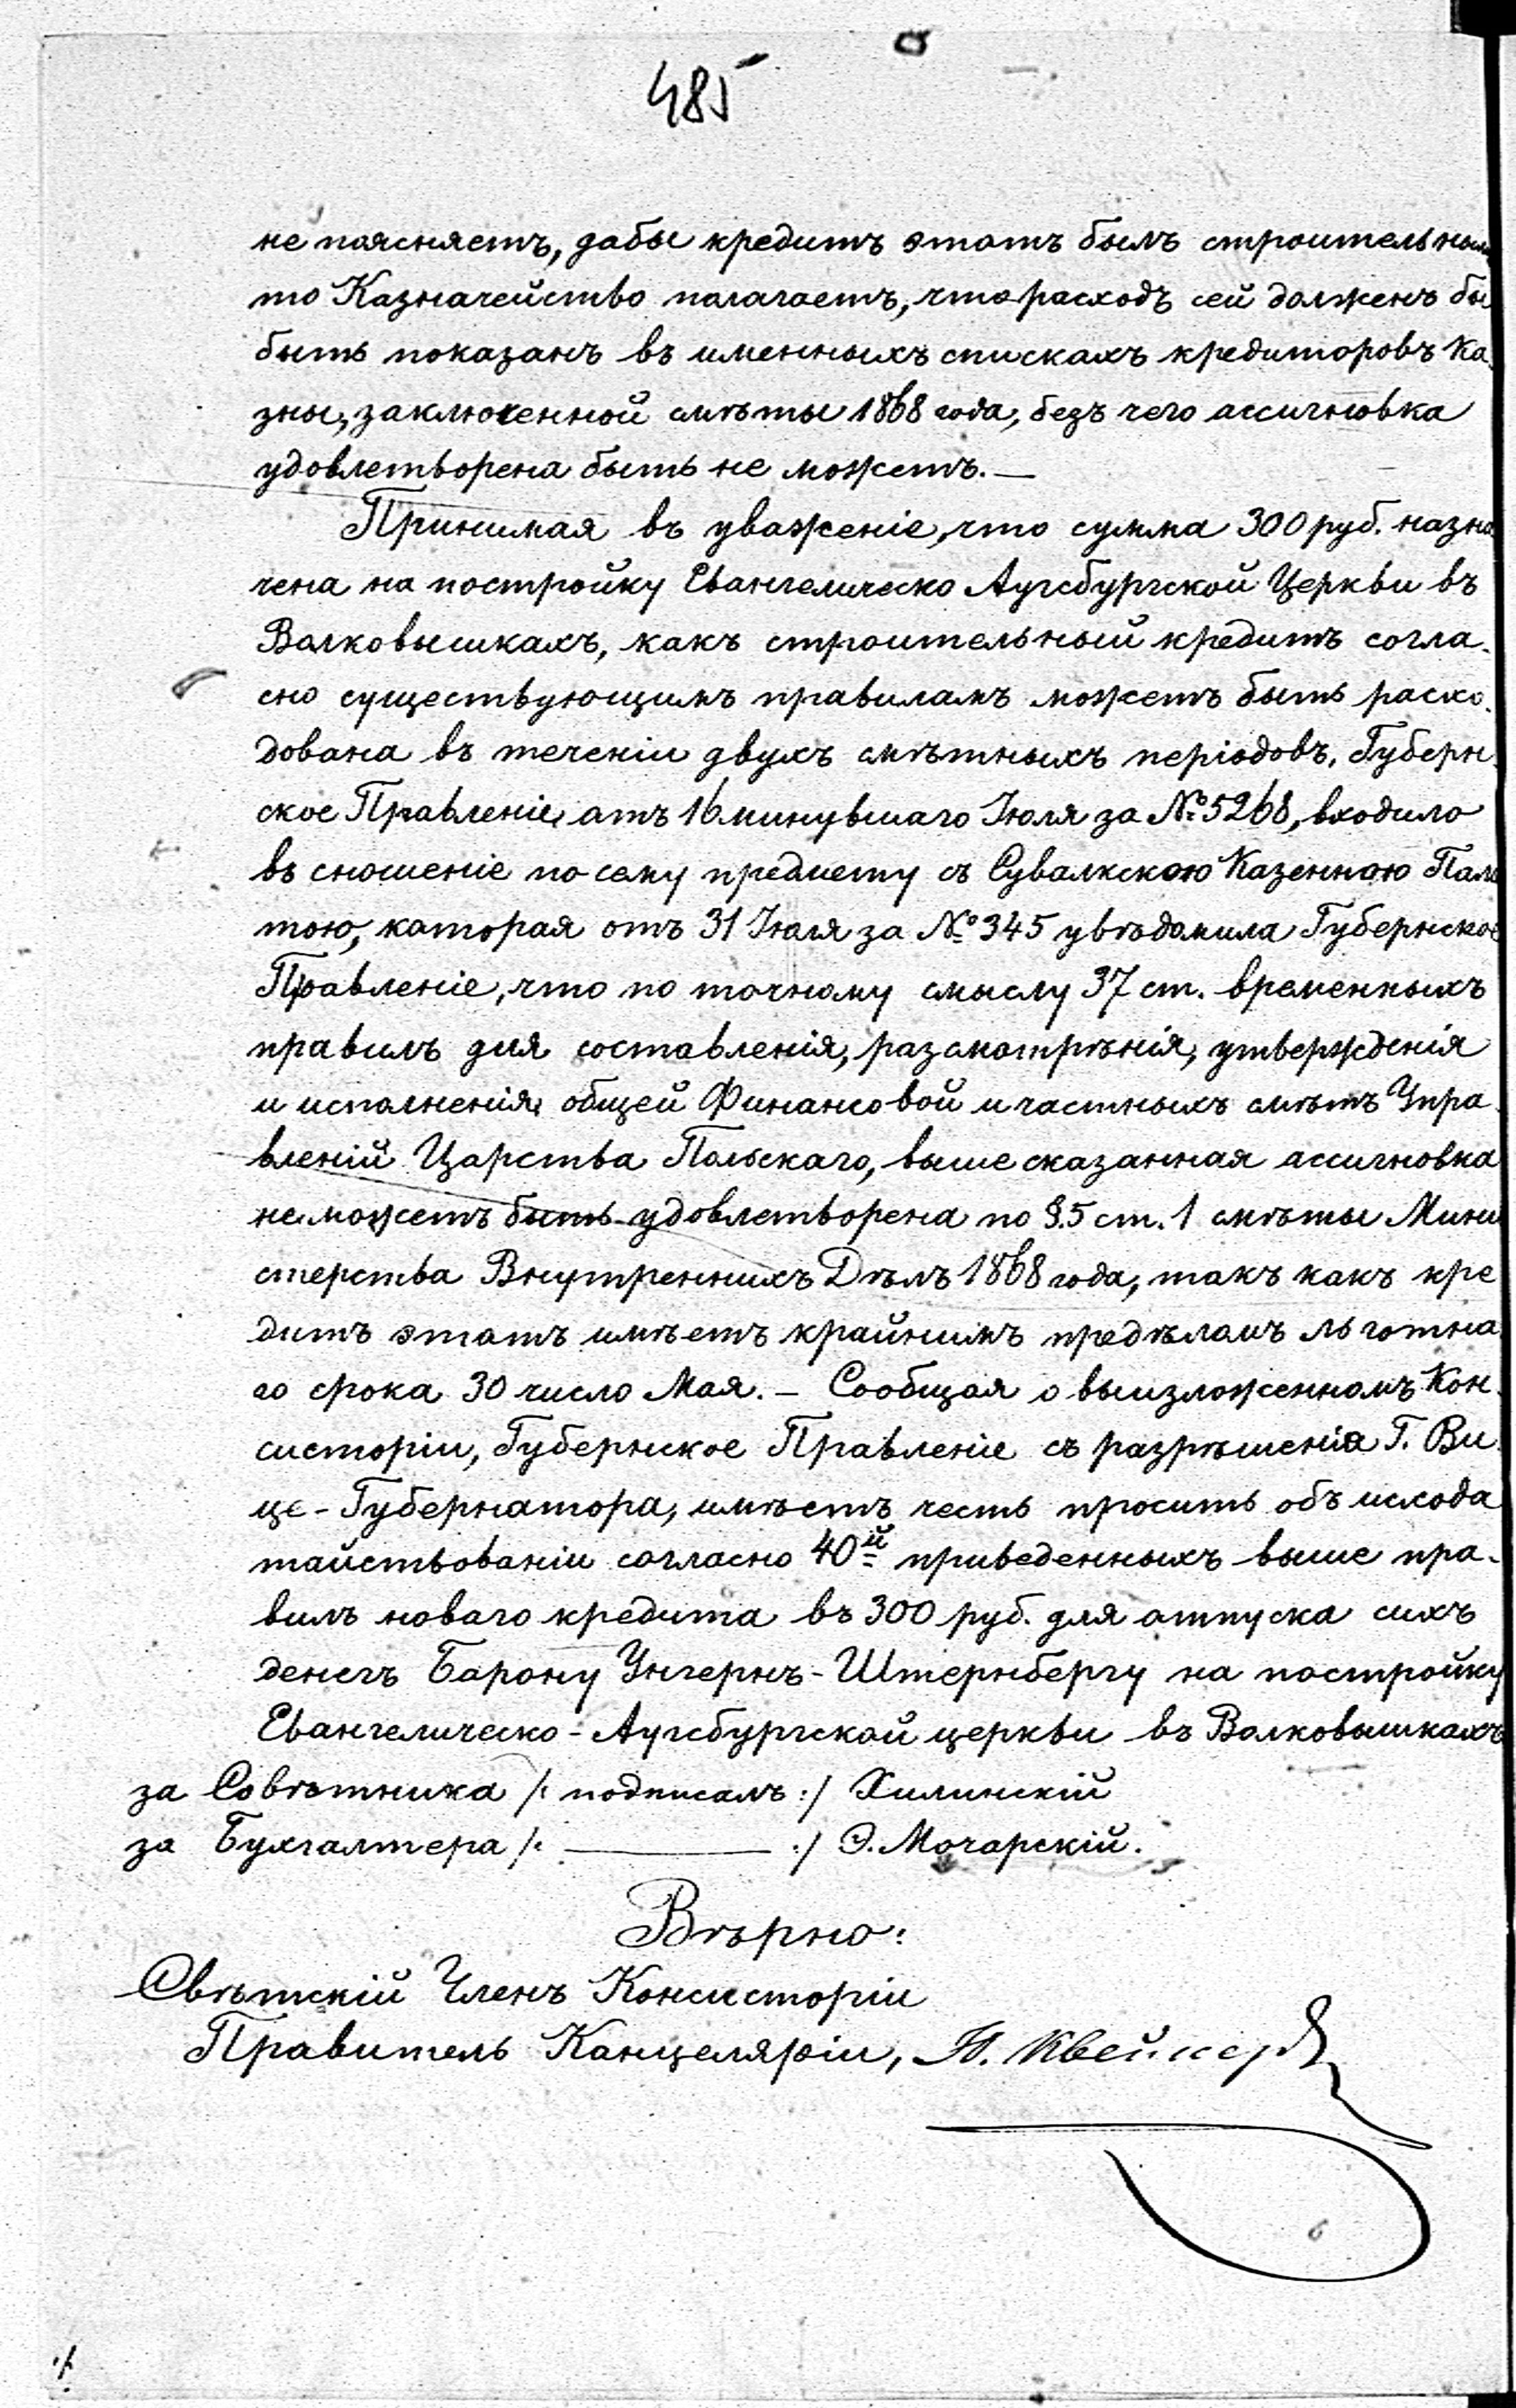 485
не паясняетъ, дабы кредитъ этотъ былъ строительным
то Казначейство полагаетъ, что расходъ сей долженъ бы
быть показанъ въ именныхъ спискахъ кредиторовъ Ка-
зны, заключенной смѣты 1868 года, безъ чего ассигновка
удовлетворена быть не можетъ. —
Принимая въ уваженіе, что сумма 300 руб. назна
чена на постройку Евангелическо Аугсбургской Церкви въ
Волковышкахъ, какъ строительный кредитъ согла-
сно существующимъ правиламъ можетъ быть расхо-
дована въ теченіи двухъ смѣтныхъ періодовъ, Губерн-
ское Правленіе, отъ 16 минувшаго Іюля за № 5268, входило
въ сношеніе по сему предмету съ Сувалкскою Казенною Пала
тою, которая отъ 31 Іюля за № 345 увѣдомила Губернское
Правленіе, что по точному смыслу 37 ст. временныхъ
правилъ для составленія, разсмотрѣнія, утвержденія
и исполненія, общей Финансовой и частныхъ смѣтъ Упра-
вленій Царства Польскаго, выше сказанная ассигновка
не можетъ быть удовлетворена по §.5 ст. 1 смѣты Мини
стерства Внутреннихъ Дѣлъ 1868 года, такъ какъ кре
дитъ этотъ имѣетъ крайнимъ предѣломъ льготна
го срока 30 число Мая. — Сообщая о вышзложенномъ Кон-
систоріи, Губернское Правленіе съ разрѣшенія Г. Ви
це-Губернатора, имѣетъ честь просить объ исхода
тайствованіи согласно 40й приведенныхъ выше пра-
вилъ новаго кредита въ 300 руб. для отпуска сихъ
денегъ Барону Унгернъ-Штернбергу на постройку
Евангелическо-Аугсбургской церкви въ Волковышкахъ
за Совѣтника /: подписалъ :/ Хилинскій
за Бухгалтера /: ——— :/ Э. Мочарскій.
Вѣрно:
Свѣтскій Членъ Консисторіи
Правитель Канцеляріи,